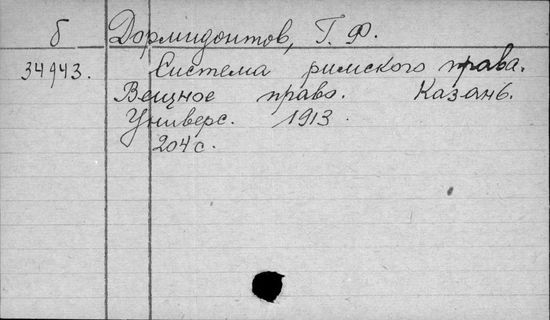 б Дормидонтов, Г. Ф.
34943. Система римского права.
Вещное право. Казань.
Универс. 1913.
204 с.